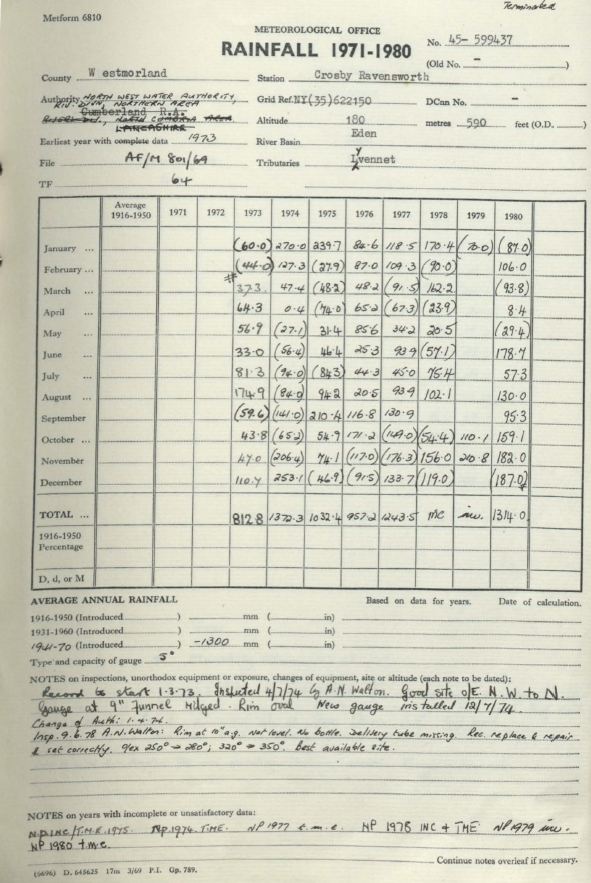 Terminated
Metform 6810
METEOROLOGICAL OFFICE
RAINFALL 1971-1980
No. 45- 599437
(Old No. - )
County Westmorland Station Crosby Ravensworth
Authority NORTH WEST WATER AUTHORITY,
RIV. DIVN, NORTHERN AREA
Cumberland R.A.
NORTH CUMBRIA AREA
LANCASHIRE
Grid Ref. NY(35)622150 DCan No. -
Altitude 180 metres 590 feet (O.D. )
Earliest year with complete data 1973
River Basin Eden
File AF/M 801/69
Tributaries Lyvennet
TF 64
Average 1916-1950 1971 1972 1973 1974 1975 1976 1977 1978 1979 1980
January ... (60.0) 270.0 239.7 84.6 118.5 170.4 (70.0) (87.0)
February ... (44.0) 127.3 (27.9) 87.0 109.3 (90.0) 106.0
March ... # 37.3 47.4 (48.2) 48.2 (91.5) 162.2 (93.8)
April ... 64.3 0.4 (74.0) 65.2 (67.3) (23.9) 8.4
May ... 56.9 (27.1) 31.4 85.6 34.2 20.5 (29.4)
June ... 33.0 (56.4) 46.4 25.3 93.9 (57.1) 178.7
July ... 81.3 (94.0) (84.3) 44.3 45.0 75.4 57.3
August ... 174.9 (84.0) 94.2 20.5 93.9 102.1 130.0
September (59.6) (141.0) 210.4 116.8 130.9 95.3
October ... 43.8 (65.2) 54.9 171.2 (149.0) (54.4) 110.1 159.1
November 47.0 (206.4) 74.1 (117.0) (176.3) 156.0 210.8 182.0
December 110.7 253.1 (46.9) (91.5) 133.7 (119.0) (187.0)
TOTAL ... 812.8 1372.3 1032.4 957.2 1243.5 inc inc. 1314.0
1916-1950
Percentage
D, d, or M
AVERAGE ANNUAL RAINFALL Based on data for years. Date of calculation.
1916-1950 (Introduced ) mm ( in)
1931-1960 (Introduced ) mm ( in)
1941-70 (Introduced ) -1300 mm ( in)
Type and capacity of gauge 5"
NOTES on inspections, unorthodox equipment or exposure, changes of equipment, site or altitude (each note to be dated):
Record to start 1.3.73. Inspected 4/7/74 by A.N. Walton. Good site o/E. N.W. to N.
Gauge at 9" funnel ridged. Rim oval New gauge installed 12/7/74.
Change of Auth: 1.4.74.
Insp. 9.6.78 A.N. Walton: Rim at 10" a.g. not level. No bottle. Delivery tube missing. Rec. replace & repair
& set correctly. 9ex 250° → 280°; 320° → 350°. Best available site.
NOTES on years with incomplete or unsatisfactory data:
N.P. INC/T.M.E. 1975. NP. 1974. T.M.E. NP 1977 t.m.e. NP 1978 INC + TME NP 1979 inc.
NP 1980 t.m.e.
Continue notes overleaf if necessary.
(6696) D. 645625 17m 3/69 P.I. Gp. 789.